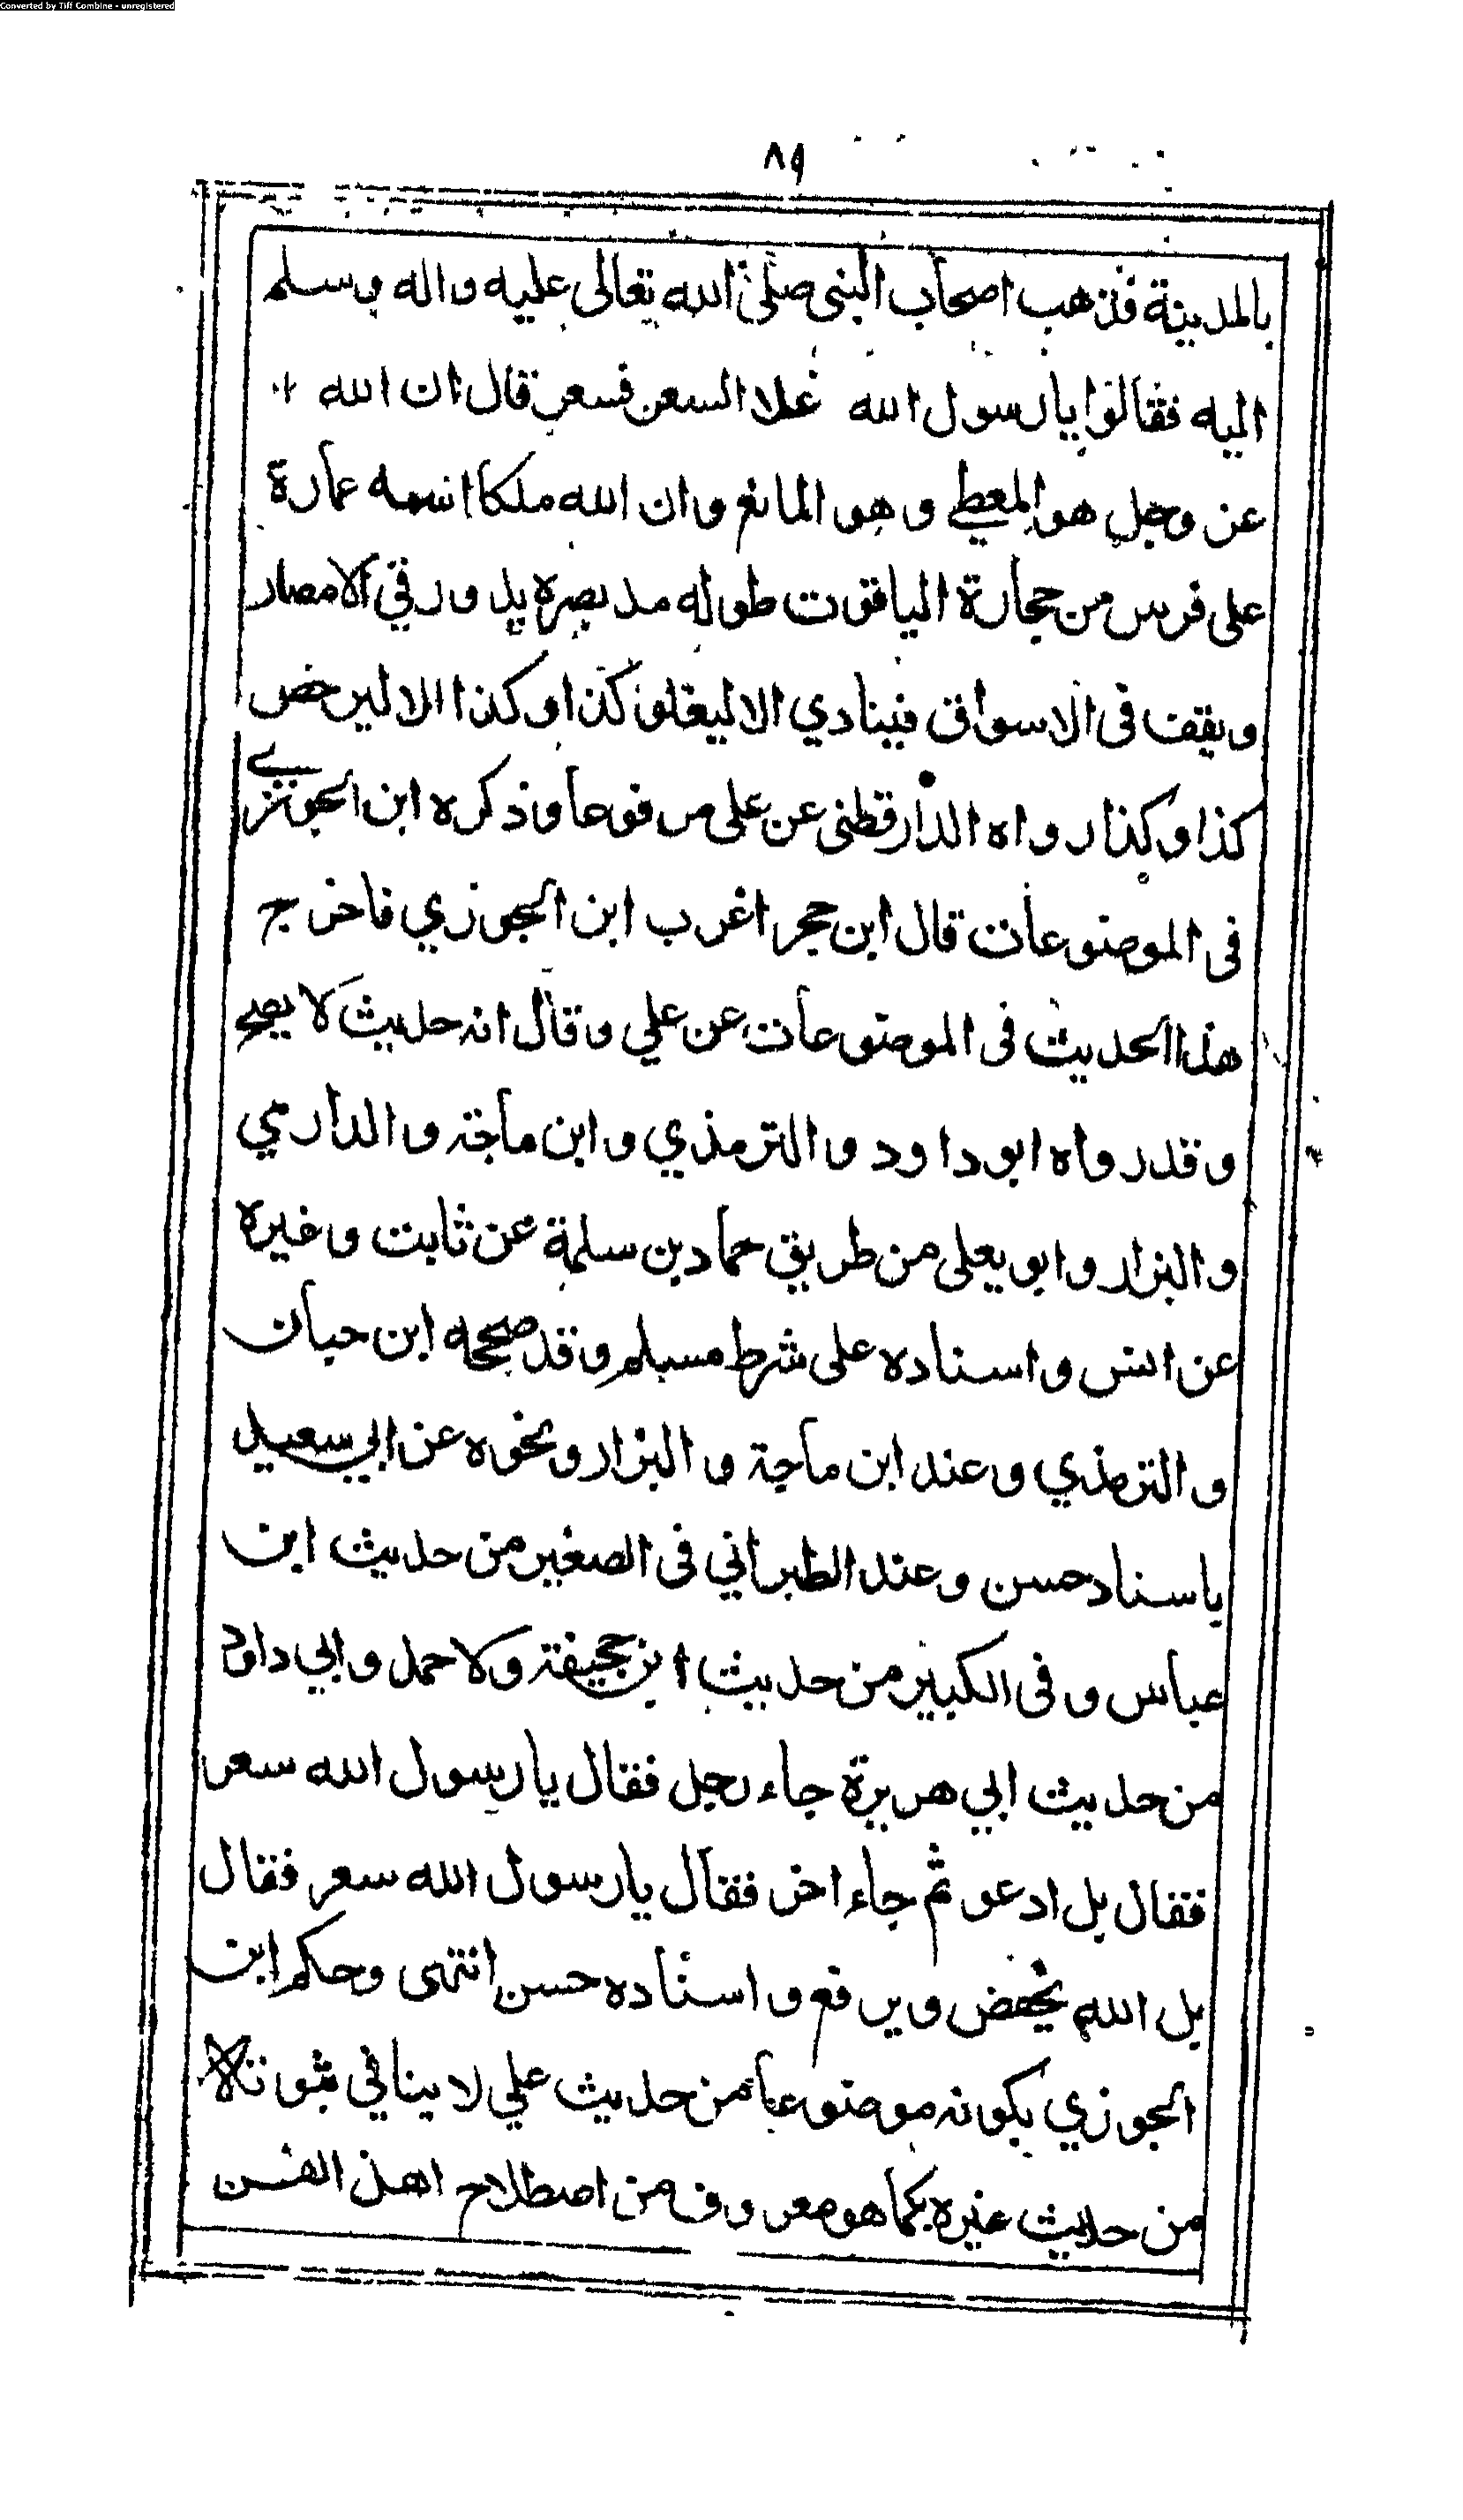 Converted by Tiff Combine - unregistered
٨٩
بالمدينة فذهب اصحاب النبى صلى الله تعالى عليه واله وسلم
اليه فقالوا يا رسول الله غلا السعر فسعر قال ان الله
عز وجل هو المعطي وهو المانع وان الله ملكا اسمه عمارة
على فرس من حجارة الياقوت طوله مد بصره يدور في الامصار
ويقف فى الاسواق فينادي الا ليغلو كذا وكذا الا ليرخص
كذا وكذا رواه الدارقطنى عن على مرفوعا وذكره ابن الجوزي
فى الموضوعات قال ابن حجر اغرب ابن الجوزي فاخرج
هذا الحديث فى الموضوعات عن علي وقال انه حديث لا يصح
وقد رواه ابو داود والترمذي وابن ماجة والدارمي
والبزار وابو يعلى من طريق حماد بن سلمة عن ثابت وغيره
عن انس واسناده على شرط مسلم وقد صححه ابن حبان
والترمذي وعند ابن ماجة والبزار ونحوه عن ابي سعيد
باسناد حسن وعند الطبراني فى الصغير من حديث ابن
عباس وفى الكبير من حديث ابن جحيفة ولاحمد وابي داود
من حديث ابي هريرة جاء رجل فقال يا رسول الله سعر
فقال بل ادعو ثم جاء اخر فقال يا رسول الله سعر فقال
بل الله يخفض ويرفع واسناده حسن انتهى وحكم ابن
الجوزي بكونه موضوعا من حديث علي لا ينافي ثبوته
من حديث غيره كما هو معروف من اصطلاح اهل الفن